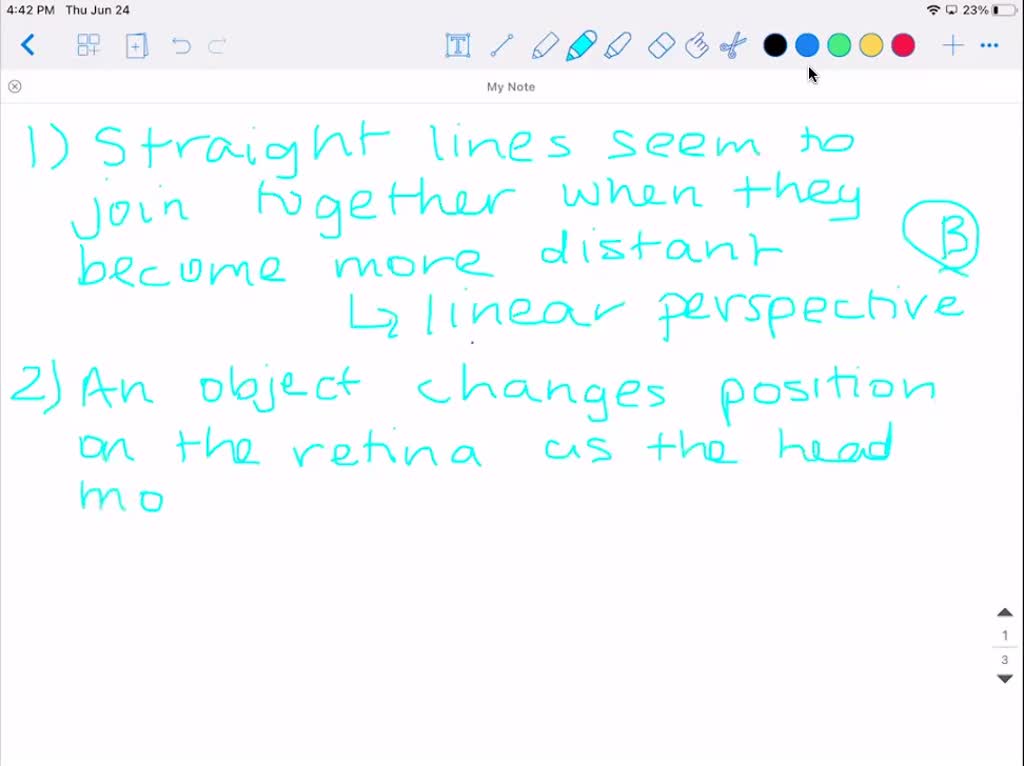 4:42 PM Thu Jun 24 23%
My Note
1) Straight lines seem to
join together when they
become more distant B
↳ linear perspective
2) An object changes position
on the retina as the head
mo
1
3